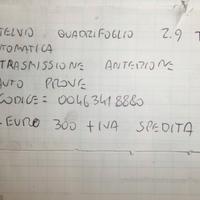 TELVIO QUADRIFOGLIO 2.9 T
UTOMATICA
TRASMISSIONE ANTERIORE
AUTO PROVE
CODICE = 00463418880
EURO 300 + IVA SPEDITA